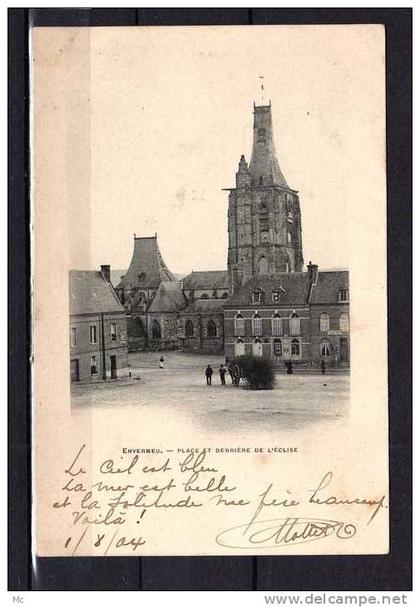 ENVERMEU. — PLACE ET DERRIÈRE DE L'ÉGLISE
Le Ciel est bleu
La mer est belle
et la Solitude me pèse beaucoup
Voilà !
1/8/04
http://www.delcampe.net